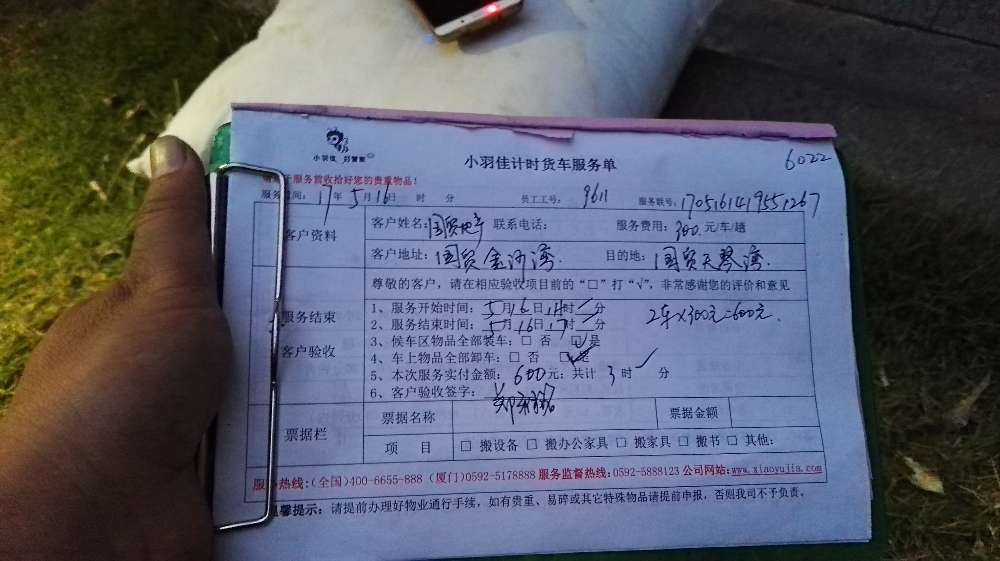 小羽佳 好管家
小羽佳计时货车服务单
6022
服务前收拾好您的贵重物品！
服务时间：17年5月16日 时 分 员工工号：9611 服务联号：1705161419551267
客户资料
客户姓名：国贸地产 联系电话： 服务费用：300元/车/趟
客户地址：国贸金沙湾 目的地：国贸天琴湾
服务结束
客户验收
尊敬的客户，请在相应验收项目前的“□”打“√”，非常感谢您的评价和意见
1、服务开始时间：5月16日14时/分
2、服务结束时间：5月16日17时/分
2车×300元=600元
3、候车区物品全部装车：□ 否 □是
4、车上物品全部卸车：□ 否 ☑是
5、本次服务实付金额：600元；共计 3 时 分
6、客户验收签字：
票据栏
票据名称 票据金额
项 目 □ 搬设备 □ 搬办公家具 □ 搬家具 □ 搬书 □ 其他：
服务热线：（全国）400-6655-888（厦门）0592-5178888 服务监督热线：0592-5888123 公司网站：www.xiaoyujia.com
温馨提示：请提前办理好物业通行手续，如有贵重、易碎或其它特殊物品请提前申报，否则我司不予负责。